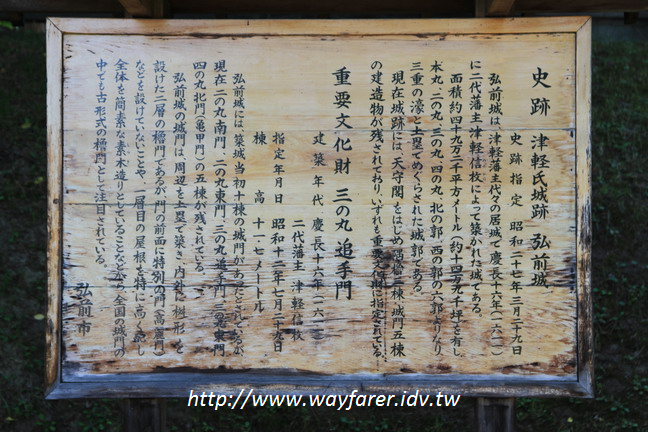 史跡 津軽氏城跡 弘前城
史跡指定 昭和二十七年三月二十九日
弘前城は、津軽藩主代々の居城で慶長十六年(一六一一)
に二代藩主津軽信枚によって築かれた城である。
面積約四十九万二千平方メートル(約十四万九千坪)を有し、
本丸、二の丸、三の丸、四の丸、北の郭、西の郭の六郭から成り、
三重の濠と土塁でめぐらされた城郭である。
現在城跡には、天守閣をはじめ隅櫓三棟、城門五棟
の建造物が残されており、いずれも重要文化財に指定されている。
重要文化財 三の丸追手門
建築年代 慶長十六年(一六一一)
二代藩主 津軽信枚
指定年月日 昭和十二年七月二十九日
棟高 十一・七メートル
弘前城には、築城当初十棟の城門があったとされているが、
現在二の丸南門、二の丸東門、三の丸追手門、三の丸東門
四の丸北門(亀甲門)の五棟が残されている。
弘前城の城門は、周辺を土塁で築き、内外に「桝形」を
設けた二層の櫓門であるが、門の前面に特別の門(高麗門)
などを設けていないことや、一層目の屋根を特に高く配し
全体を簡素な素木造りとしていることなどから、全国の城門の
中でも古形式の櫓門として注目されている。
弘前市
http://www.wayfarer.idv.tw